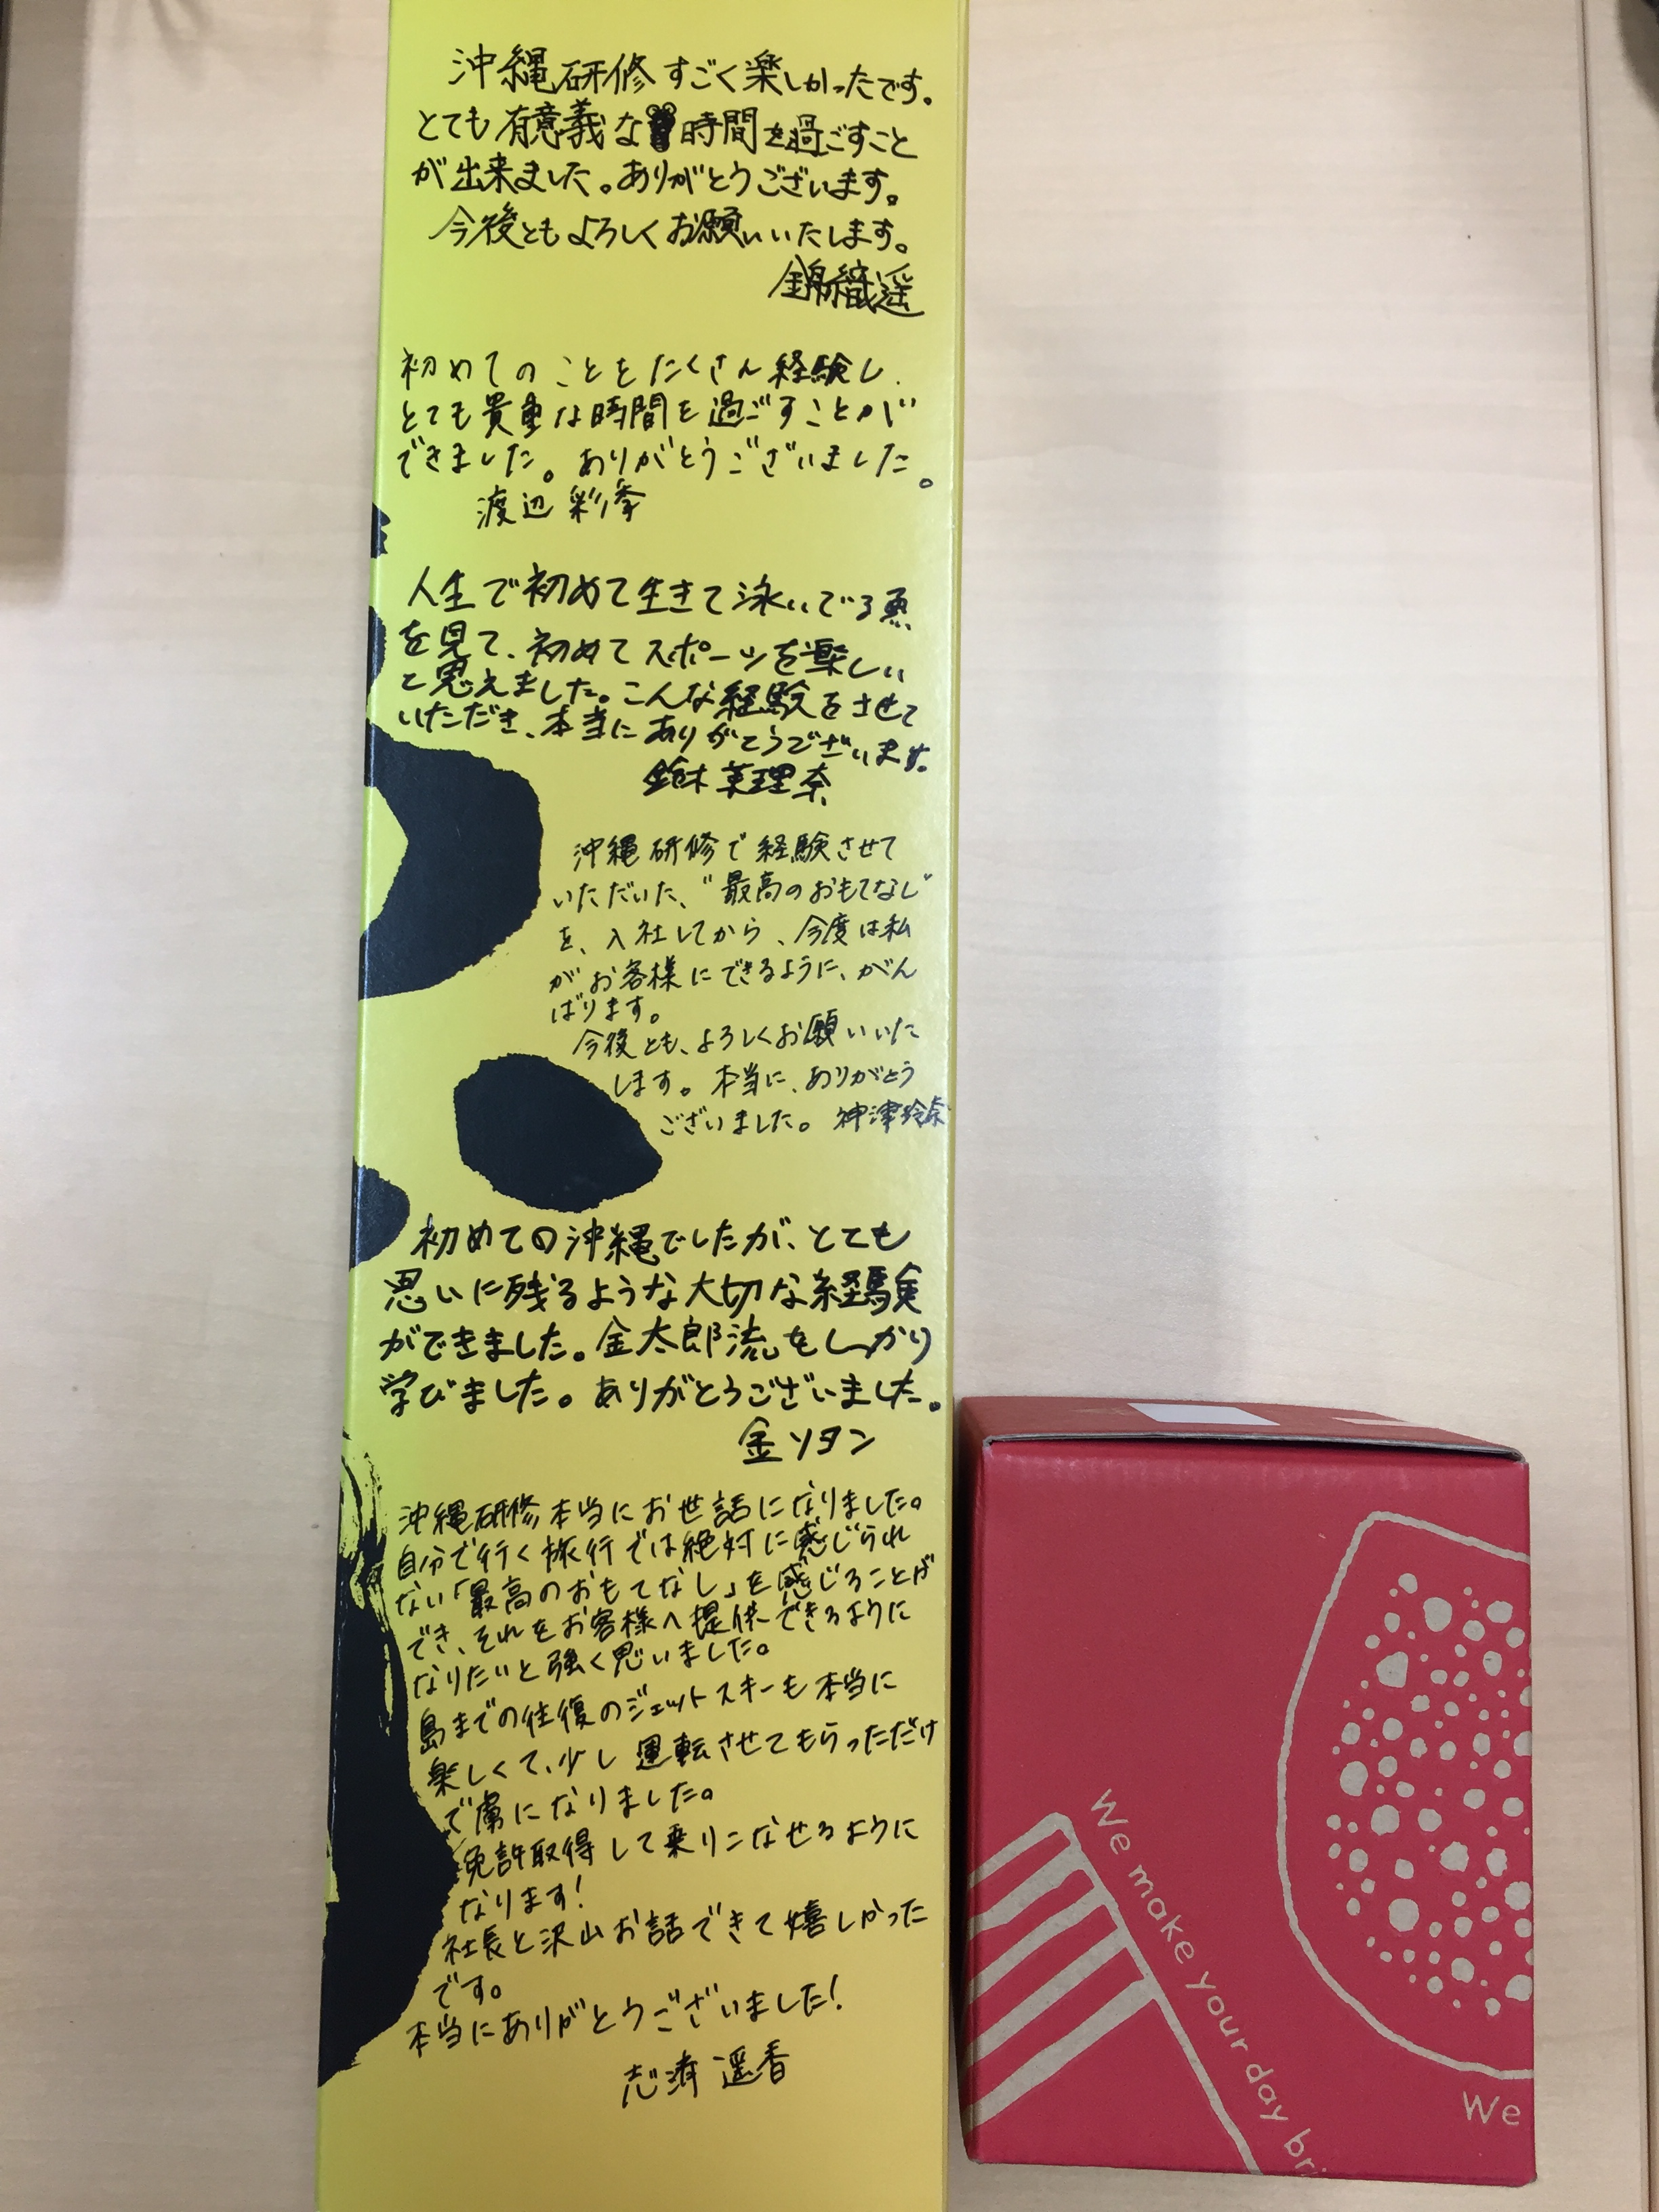 沖縄研修すごく楽しかったです。
とても有意義な時間を過ごすこと
が出来ました。ありがとうございます。
今後ともよろしくお願いいたします。
錦織遥
初めてのことをたくさん経験し、
とても貴重な時間を過ごすことが
できました。ありがとうございました。
渡辺 彩峯
人生で初めて生きて泳いでる魚
を見て、初めてスポーツを楽しい
と思えました。こんな経験をさせて
いただき、本当にありがとうございます。
鈴木茉理奈
沖縄研修で経験させて
いただいた、"最高のおもてなし"
を、入社してから、今度は私
がお客様にできるように、がん
ばります。
今後とも、よろしくお願いいた
します。本当に、ありがとう
ございました。 神津玲奈
初めての沖縄でしたが、とても
思いに残るような大切な経験
ができました。金太郎流をしっかり
学びました。ありがとうございました。
金ソタン
沖縄研修本当にお世話になりました。
自分で行く旅行では絶対に感じられ
ない「最高のおもてなし」を感じることが
でき、それをお客様へ提供できるように
なりたいと強く思いました。
島までの往復のジェットスキーも本当に
楽しくて、少し運転させてもらっただけ
で虜になりました。
免許取得して乗りこなせるように
なります!
社長と沢山お話できて嬉しかった
です。
本当にありがとうございました!
志済 遥香
We make your day bri
We